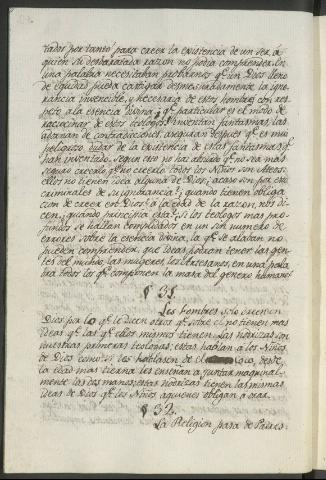 tados por tanto para creer la existencia de un ser, a
quien su desbaratada razon no podia comprender. En
una palabra necesitaban probarnos qᵉ un Dios lleno
de equidad pueda castigar desmesuradamente la igno-
rancia invencible, y necesaria de estos hombre con res-
pecto a la esencia Divina; ¡qᵉ particular es el modo de
raciocinar de estos teologos! inventan fantasmas, las
adornan de contradicciones, aseguran despues qᵉ es mui
peligroso dudar de la existencia de estas fantasmas qᵉ
han inventado. Segun esto no hai absurdo qᵉ no sea mas
seguro creerlo qᵉ no creerlo: todos los Niños son ateos:
ellos no tienen idea alguna de Dios; ¿acaso son por eso
criminales de su ignorancia? ¿quando tienen obliga
cion de creer en Dios? á la edad de la razon, nos di-
cen, ¿quando principia esta? Si los teologos mas pro-
fundos se hallan complicados en un sin numero de
errores sobre la esencia divina, la qᵉ se alaban no
pueden comprender, que ideas podran tener las gen-
tes del mundo, las mugeres, los artesanos, en una pala
bra todos los qᵉ componen la masa del genero humano?
§ 31.
Los hombres solo creen en
Dios por lo qᵉ le dicen otros qᵉ sobre el no tienen mas
ideas qᵉ las qᵉ ellos mismos tienen. Las nodrizas son
nuestras primeras teologas; estas hablan a los Niños
de Dios como si les hablasen de el coco, desde
la edad mas tierna les enseñan a juntar maquinal-
mente las dos manos; estas nodrizas tienen las mismas
ideas de Dios qᵉ los Niños aquienes obligan a orar.
§ 32.
La Religion pasa de Padres